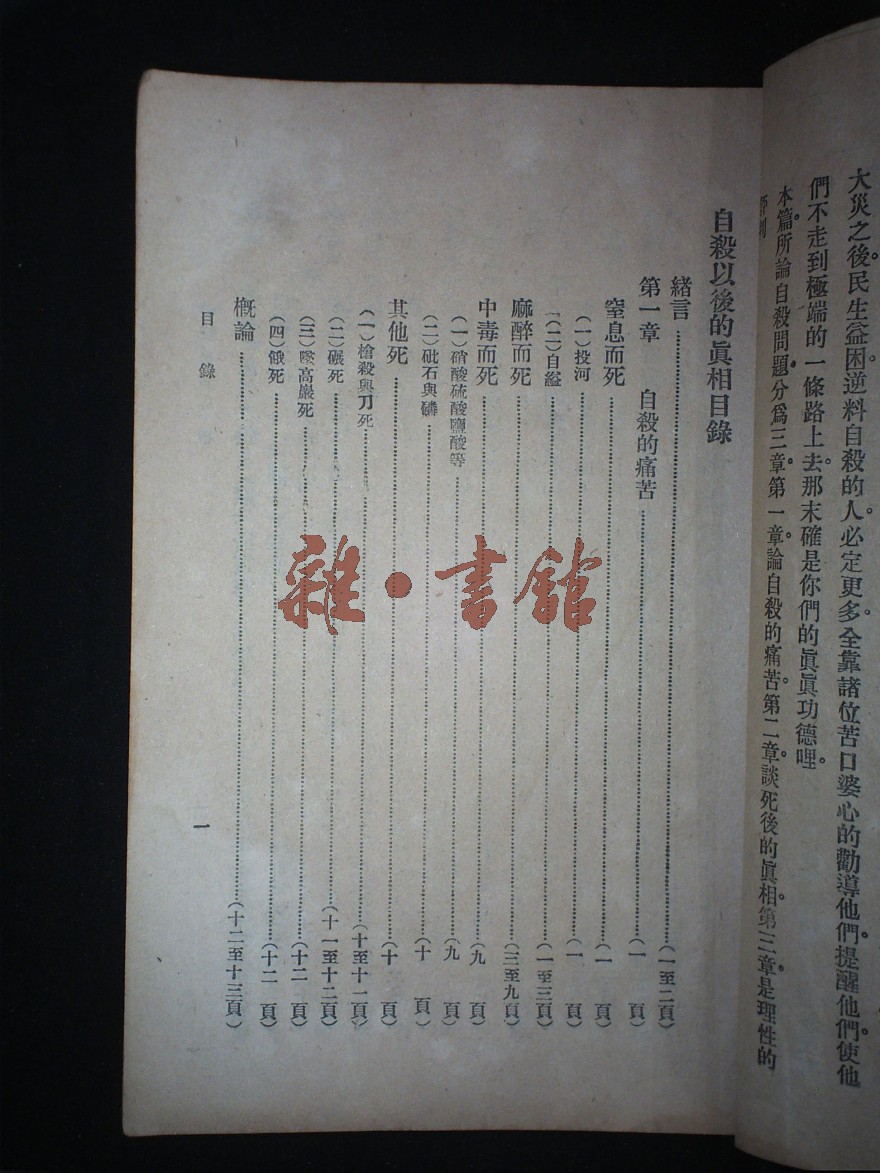 大災之後。民生益困。逆料自殺的人。必定更多。全靠諸位苦口婆心的勸導他們。提醒他們。使他
們不走到極端的一條路上去。那末確是你們的眞眞功德哩。
本篇所論自殺問題。分爲三章。第一章論自殺的痛苦。第二章談死後的眞相。第三章是理性的
自殺以後的眞相目錄
緒言(一至二頁)
第一章 自殺的痛苦(一 頁)
窒息而死(一 頁)
(一)投河(一 頁)
(二)自縊(一至三頁)
麻醉而死(三至九頁)
中毒而死(九 頁)
(一)硝酸硫酸鹽酸等(九 頁)
(二)砒石與磷(十 頁)
其他死(十 頁)
(一)槍殺與刀死(十至十一頁)
(二)碾死(十一至十二頁)
(三)墜高巖死(十二 頁)
(四)餓死(十二 頁)
槪論(十二至十三頁)
目 錄 一
雜·書館